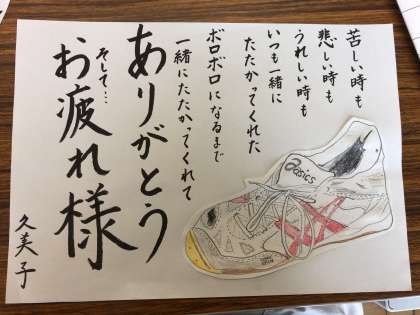 苦しい時も
悲しい時も
うれしい時も
いつも一緒に
たたかってくれた
ボロボロになるまで
一緒にたたかってくれて
ありがとう
そして…
お疲れ様
久美子
asics